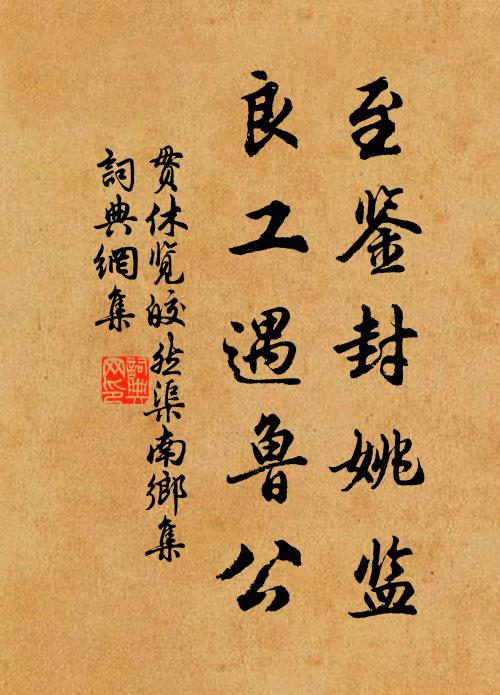 至鉴封姚监
良工遇鲁公
贯休览皎然渠南乡集
词典网集
词典网印